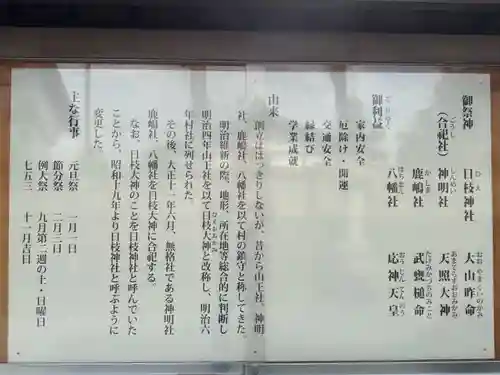 御祭神 日枝神社 大山咋命
（合祀社） 神明社 天照大神
鹿嶋社 武甕槌命
八幡社 応神天皇
御利益
家内安全
厄除け・開運
交通安全
縁結び
学業成就
由来
創立ははっきりしないが、昔から山王社、神明
社、鹿嶋社、八幡社を以て村の鎮守と称してきた。
明治維新の際、地形、所在地等総合的に判断し
明治四年山王社を以て日枝大神と改称し、明治六
年村社に列せられた。
その後、大正十一年六月、無格社である神明社
鹿嶋社、八幡社を日枝大神に合祀する。
なお、日枝大神のことを日枝神社と呼んでいた
ことから、昭和十九年より日枝神社と呼ぶように
変更した。
主な行事 元旦祭 一月一日
節分祭 二月三日
例大祭 九月第二週の土・日曜日
七五三 十一月吉日